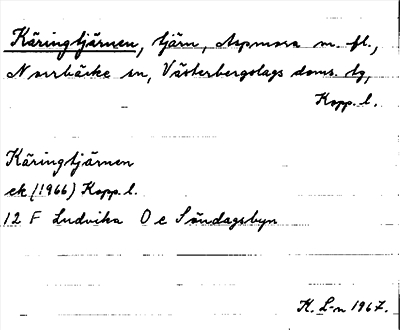 Käringtjärnen, tjärn, Aspmora m. fl.,
Norrbärke sn, Västerbergslags doms. tg,
Kopp. l.
Käringtjärnen
ek (1966) Kopp. l.
12 F Ludvika O e Söndagsbyn
K. L-n 1967.